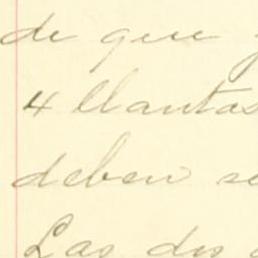 de que
4 llantas
deben se
Las dos